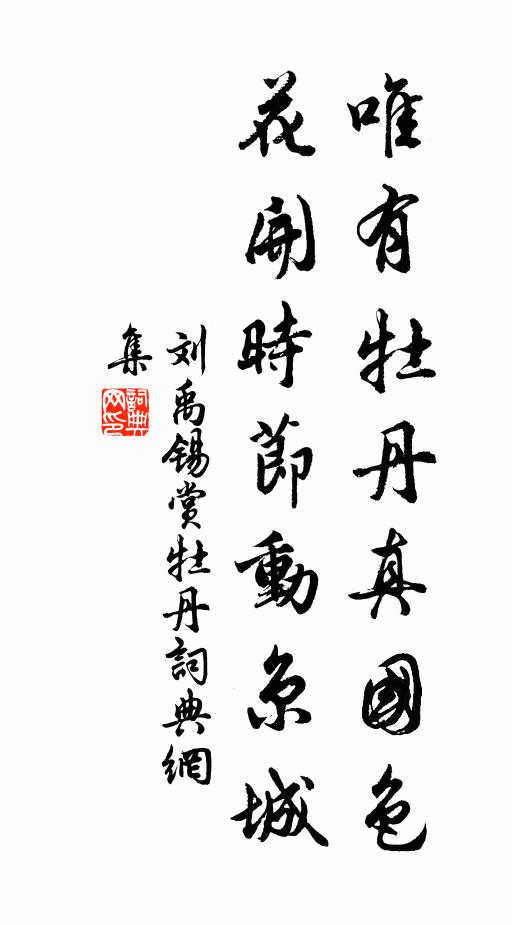 唯有牡丹真國色
花開時節動京城
刘禹锡赏牡丹詞典網
集
詞典网印